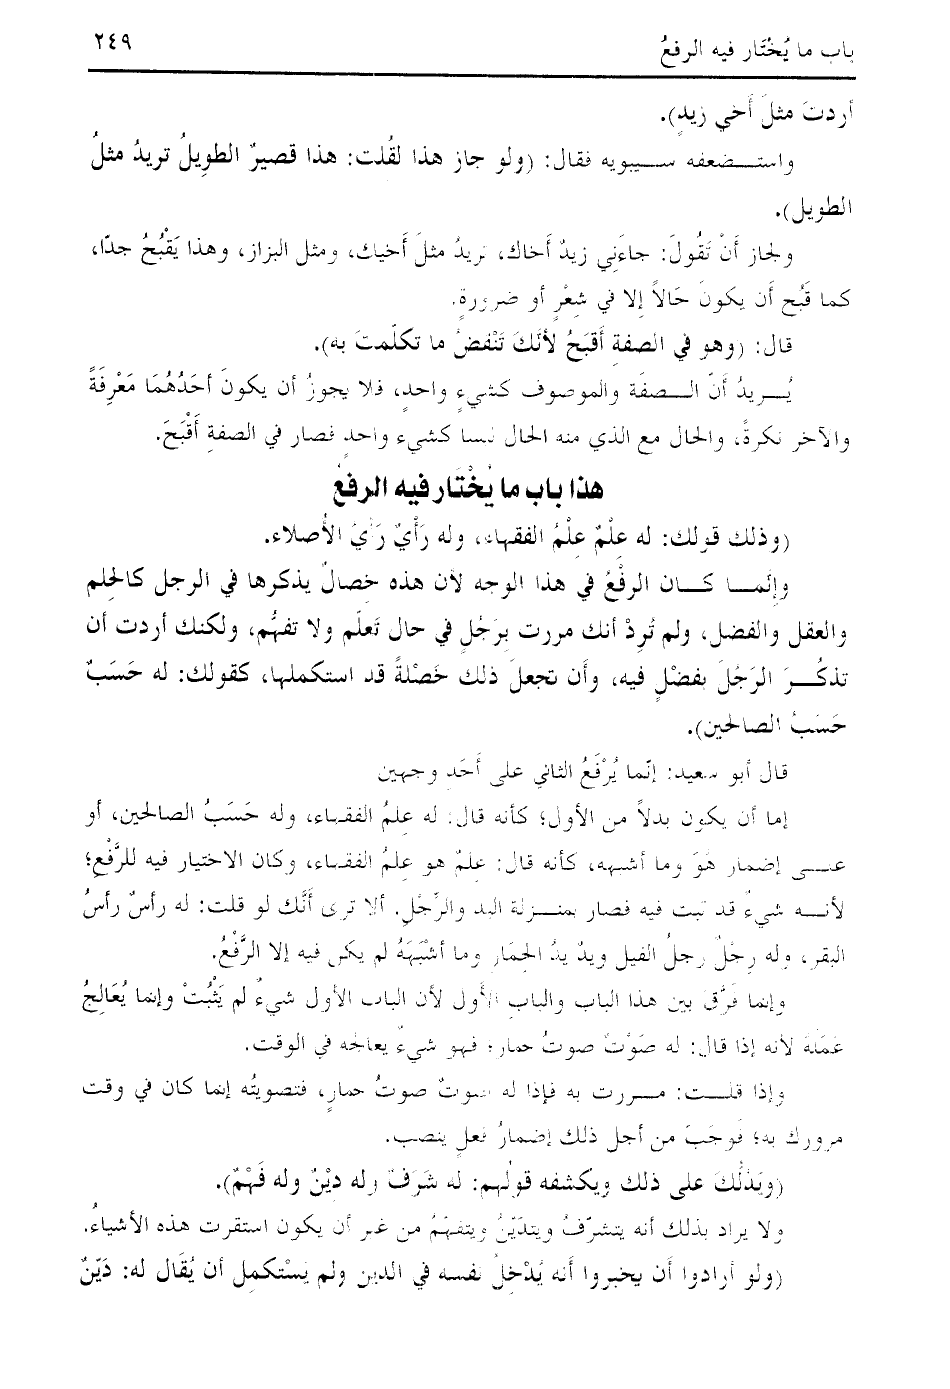 باب ما يُخْتَار فيه الرفعُ ٢٤٩
أردتَ مثلَ أَخي زيدٍ).
واستـضعفه سـيبويه فقال: (ولو جاز هذا لقُلت: هذا قصيرٌ الطويلُ تريدُ مثلُ
الطويل).
ولجاز أَنْ تَقُولَ: جاءَني زيدٌ أَخاك، تريدُ مثلَ أَخيك، ومثل البزاز، وهذا يَقْبُحُ جدّا،
كما قَبُح أَن يكونَ حَالاً إلا في شِعْرٍ أو ضرورةٍ.
قال: (وهو في الصفة أَقبَحُ لأنَكَ تَنْقضُ ما تكلّمتَ به).
يُـريدُ أنّ الـصفَة والموصوف كشيءٍ واحدٍ، فلا يجوزُ أن يكونَ أحَدُهُمَا مَعْرِفَةً
والآخر نكرةً، والحال مع الذي منه الحال ليسا كشيء واحدٍ فصار في الصفةِ أَقْبَحَ.
هذا باب ما يُخْتَار فيه الرفعُ
(وذلك قولك: له عِلْمٌ عِلْمُ الفقهاء، وله رَأْيٌ رَأيُ الأُصلاء.
وإنّمـا كـان الرفْعُ في هذا الوجه لأن هذه خصالٌ يذكرها في الرجل كالحلم
والعقل والفضل، ولم تُرِدْ أنك مررت برَجُلٍ في حال تَعلّم ولا تفهُّم، ولكنك أردت أن
تذكُـرَ الرَجُلَ بفضْلٍ فيه، وأن تجعلَ ذلك خَصْلةً قد استكملها، كقولك: له حَسَبٌ
حَسَبُ الصالحين).
قال أبو سعيد: إنّما يُرْفَعُ الثاني على أَحَدِ وجهين
إما أن يكون بدلاً من الأول؛ كأنه قال: له علمُ الفقهاء، وله حَسَبُ الصالحين، أو
عـلى إضمار هوَ وما أشبهه، كأنه قال: علمٌ هو علمُ الفقهاء، وكان الاختيار فيه للرَّفْعِ؛
لأنـه شيءٌ قد ثبت فيه فصار بمنـزلة اليد والرِّجْلِ. ألا ترى أَنَّك لو قلت: له رأسٌ رأسُ
البقر، وله رِجْلٌ رجلُ الفيل ويدٌ يدُ الحِمَار وما أَشْبَهَهُ لم يكن فيه إلا الرَّفْعُ.
وإنما فَرَّقَ بين هذا الباب والباب الأَول لأن الباب الأول شيءٌ لم يَثْبُتْ وإنما يُعَالِجُ
عَمَلَهُ لأنه إذا قال: له صَوْتٌ صوتُ حمارٍ؛ فهو شيءٌ يعالجه في الوقت.
وإذا قلـت: مـررت به فإذا له صوتٌ صوتُ حمارٍ، فتصويتُه إنما كان في وقت
مرورك به؛ فَوَجَبَ من أجل ذلك إضمارُ فعلٍ ينصب.
(ويَدُلُّكَ على ذلك ويكشفه قولُهم: له شَرَفٌ وله دِيْنٌ وله فَهْمٌ).
ولا يراد بذلك أنه يتشرّفُ ويتدَيّنُ ويتفهّمُ من غير أن يكون استقرت هذه الأشياءُ.
(ولو أرادوا أن يخبروا أنه يُدْخلُ نفسه في الدين ولم يَسْتكمل أن يُقَال له: دَيّنٌ